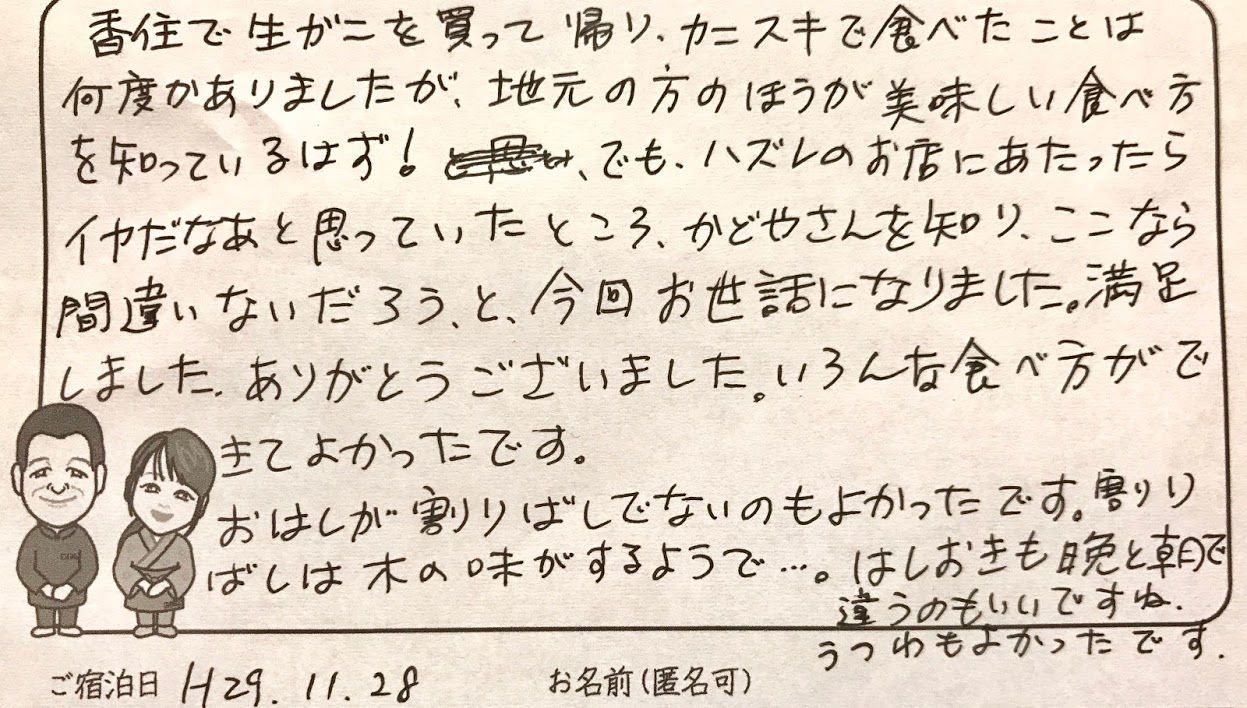 香住で生がニを買って帰り、カニスキで食べたことは
何度かありましたが、地元の方のほうが美味しい食べ方
を知っているはず!、でも、ハズレのお店にあたったら
イヤだなあと思っていたところ、かどやさんを知り、ここなら
間違いないだろう、と、今回お世話になりました。満足
しました。ありがとうございました。いろんな食べ方がで
きてよかったです。
おはしが割りばしでないのもよかったです。割り
ばしは木の味がするようで…。はしおきも晩と朝で
違うのもいいですね.
うつわもよかったです.
ご宿泊日 H29.11.28 お名前(匿名可)